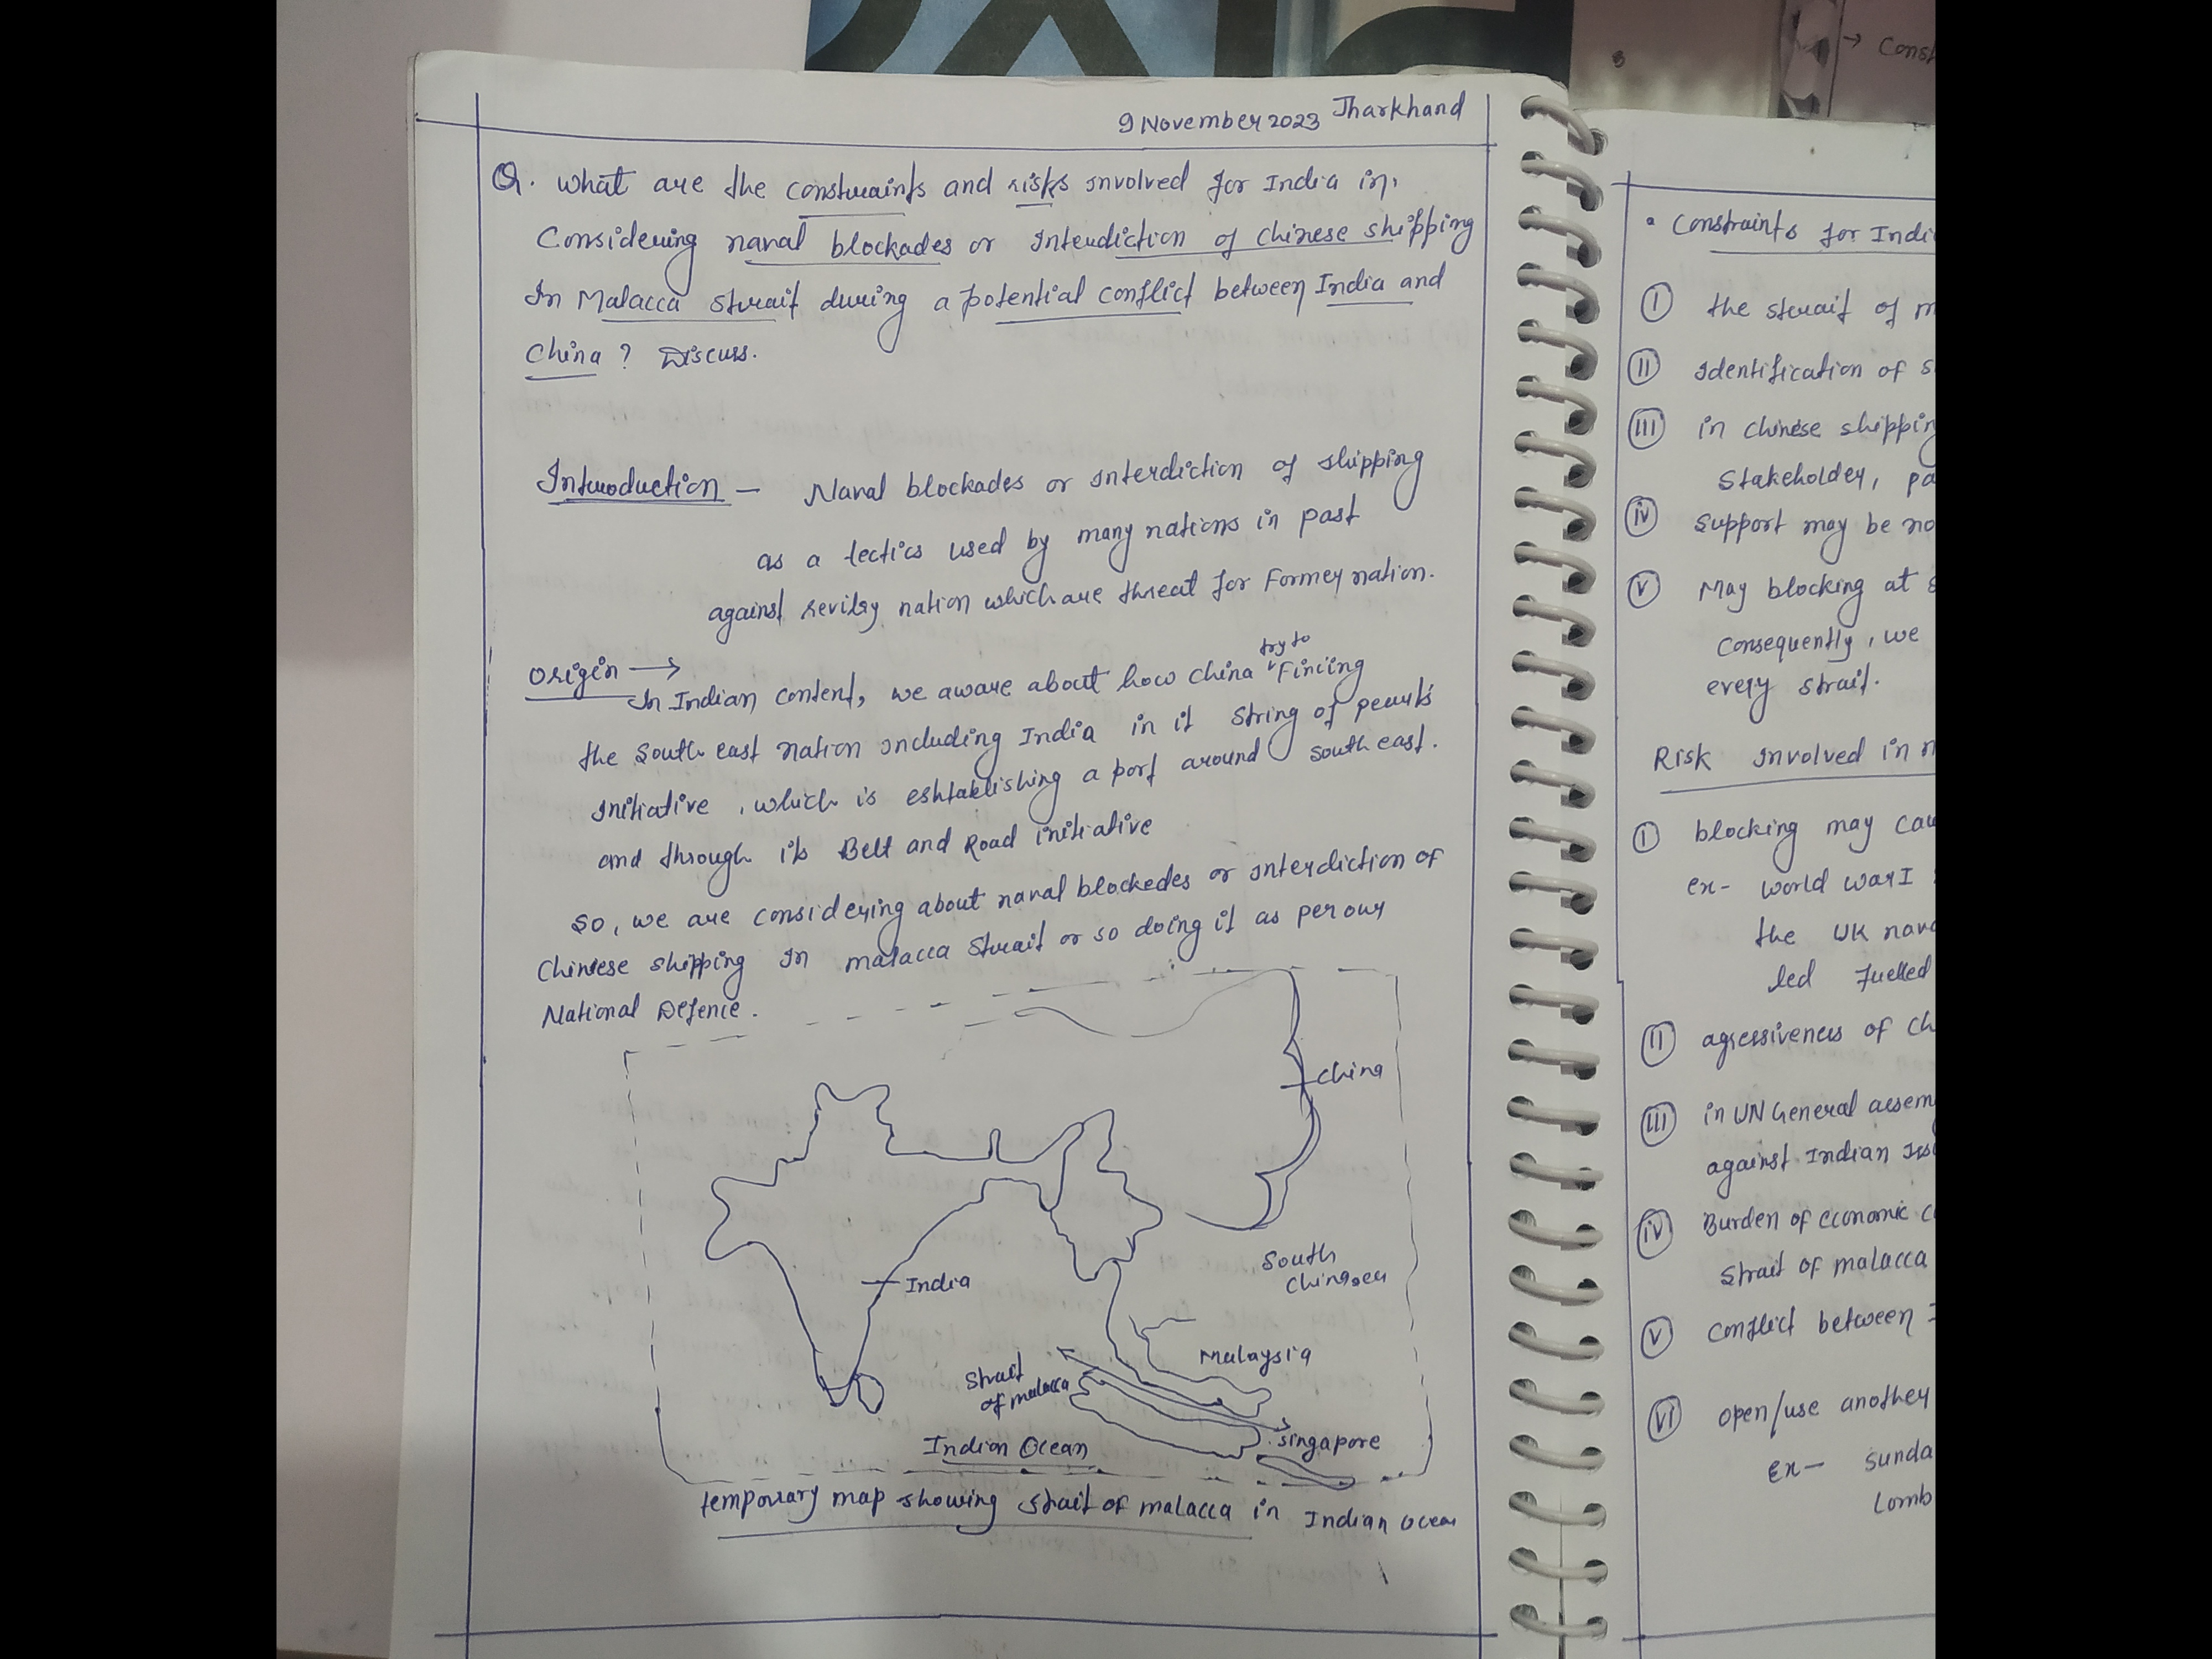 9 November 2023 Jharkhand
Q. What are the constraints and risks involved for India in
Considering naval blockades or Interdiction of Chinese shipping
In Malacca strait during a potential conflict between India and
China ? Discuss.
Introduction — Naval blockades or interdiction of shipping
as a tectics used by many nations in past
against revilry nation which are threat for Former nation.
origin →
try to
In Indian content, we aware about how China Fincing
the South east nation including India in it String of pearls
initiative, which is eshtablishing a port around south east.
and through its Belt and Road initiative
So, we are considering about naval blockedes or interdiction of
Chinese shipping In malacca Strait or so doing it as per our
National Defence.
China
India
South
China sea
Malaysia
Strait
of malacca
Singapore
Indian Ocean
temporary map showing strait of malacca in Indian Ocean
→ Const
• Constraints for Indi
(I) the strait of m
(II) Identification of s
(III) in chinese shippin
Stakeholder, pa
(iv) Support may be no
(v) May blocking at
Consequently, we
every strait.
Risk involved in
(I) blocking may cau
ex- world war I
the UK nava
led fuelled
(II) agressiveness of Ch
(III) in UN General assem
against Indian
(iv) Burden of economic c
Strait of malacca
(v) Conflict between I
(vi) open/use another
Ex— Sunda
Lomb